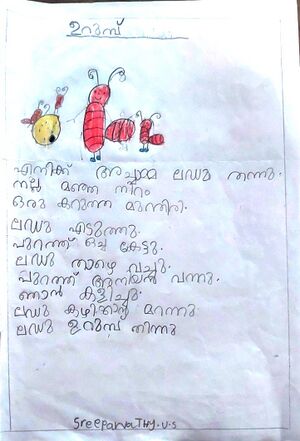 ഉറുമ്പ്
എനിക്ക് അച്ഛമ്മ ലഡു തന്നു.
നല്ല മഞ്ഞ നിറം
ഒരു കറുത്ത മുന്തിരി.
ലഡു എടുത്തു.
പുറത്ത് ഒച്ച കേട്ടു.
ലഡു താഴെ വച്ചു.
പുറത്ത് അനിയൻ വന്നു.
ഞാൻ കളിച്ചു.
ലഡു കഴിക്കാൻ മറന്നു.
ലഡു ഉറുമ്പ് തിന്നു
SreeparvaTHy.U.S